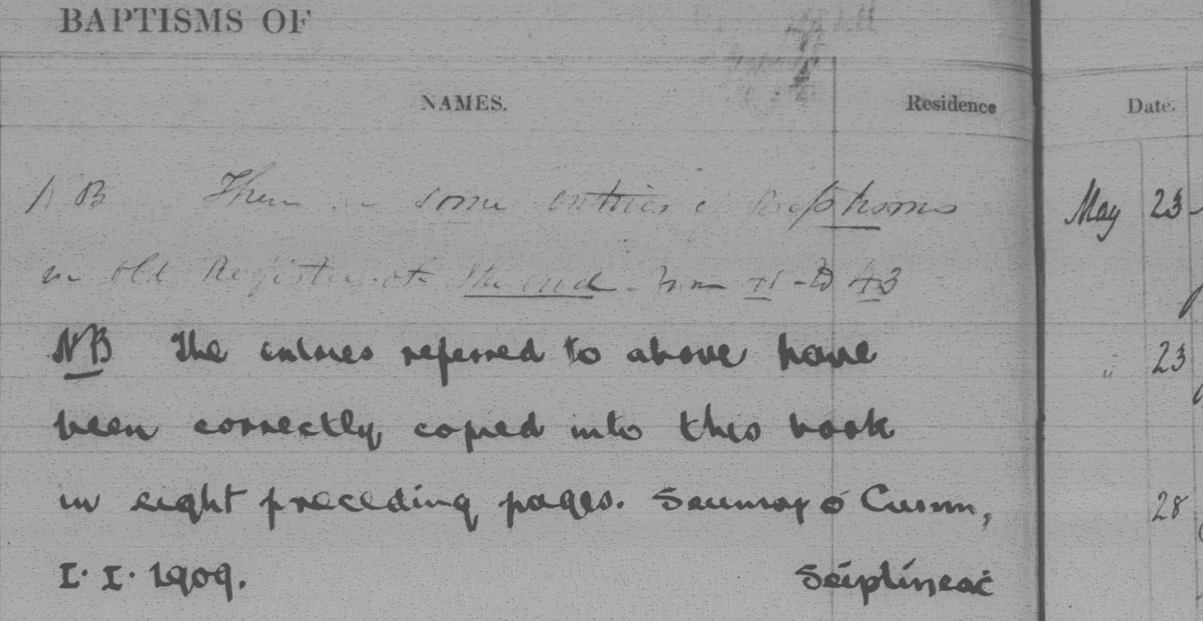 BAPTISMS OF
NAMES. Residence Date.
NB There some entries Baptisms May 23
in old Register at the end from 41 to 43
NB The entries referred to above have „ 23
been correctly copied into this book
in eight preceding pages. Seumas ó Cuinn, 28
I. I. 1909. Séiplíneaċ